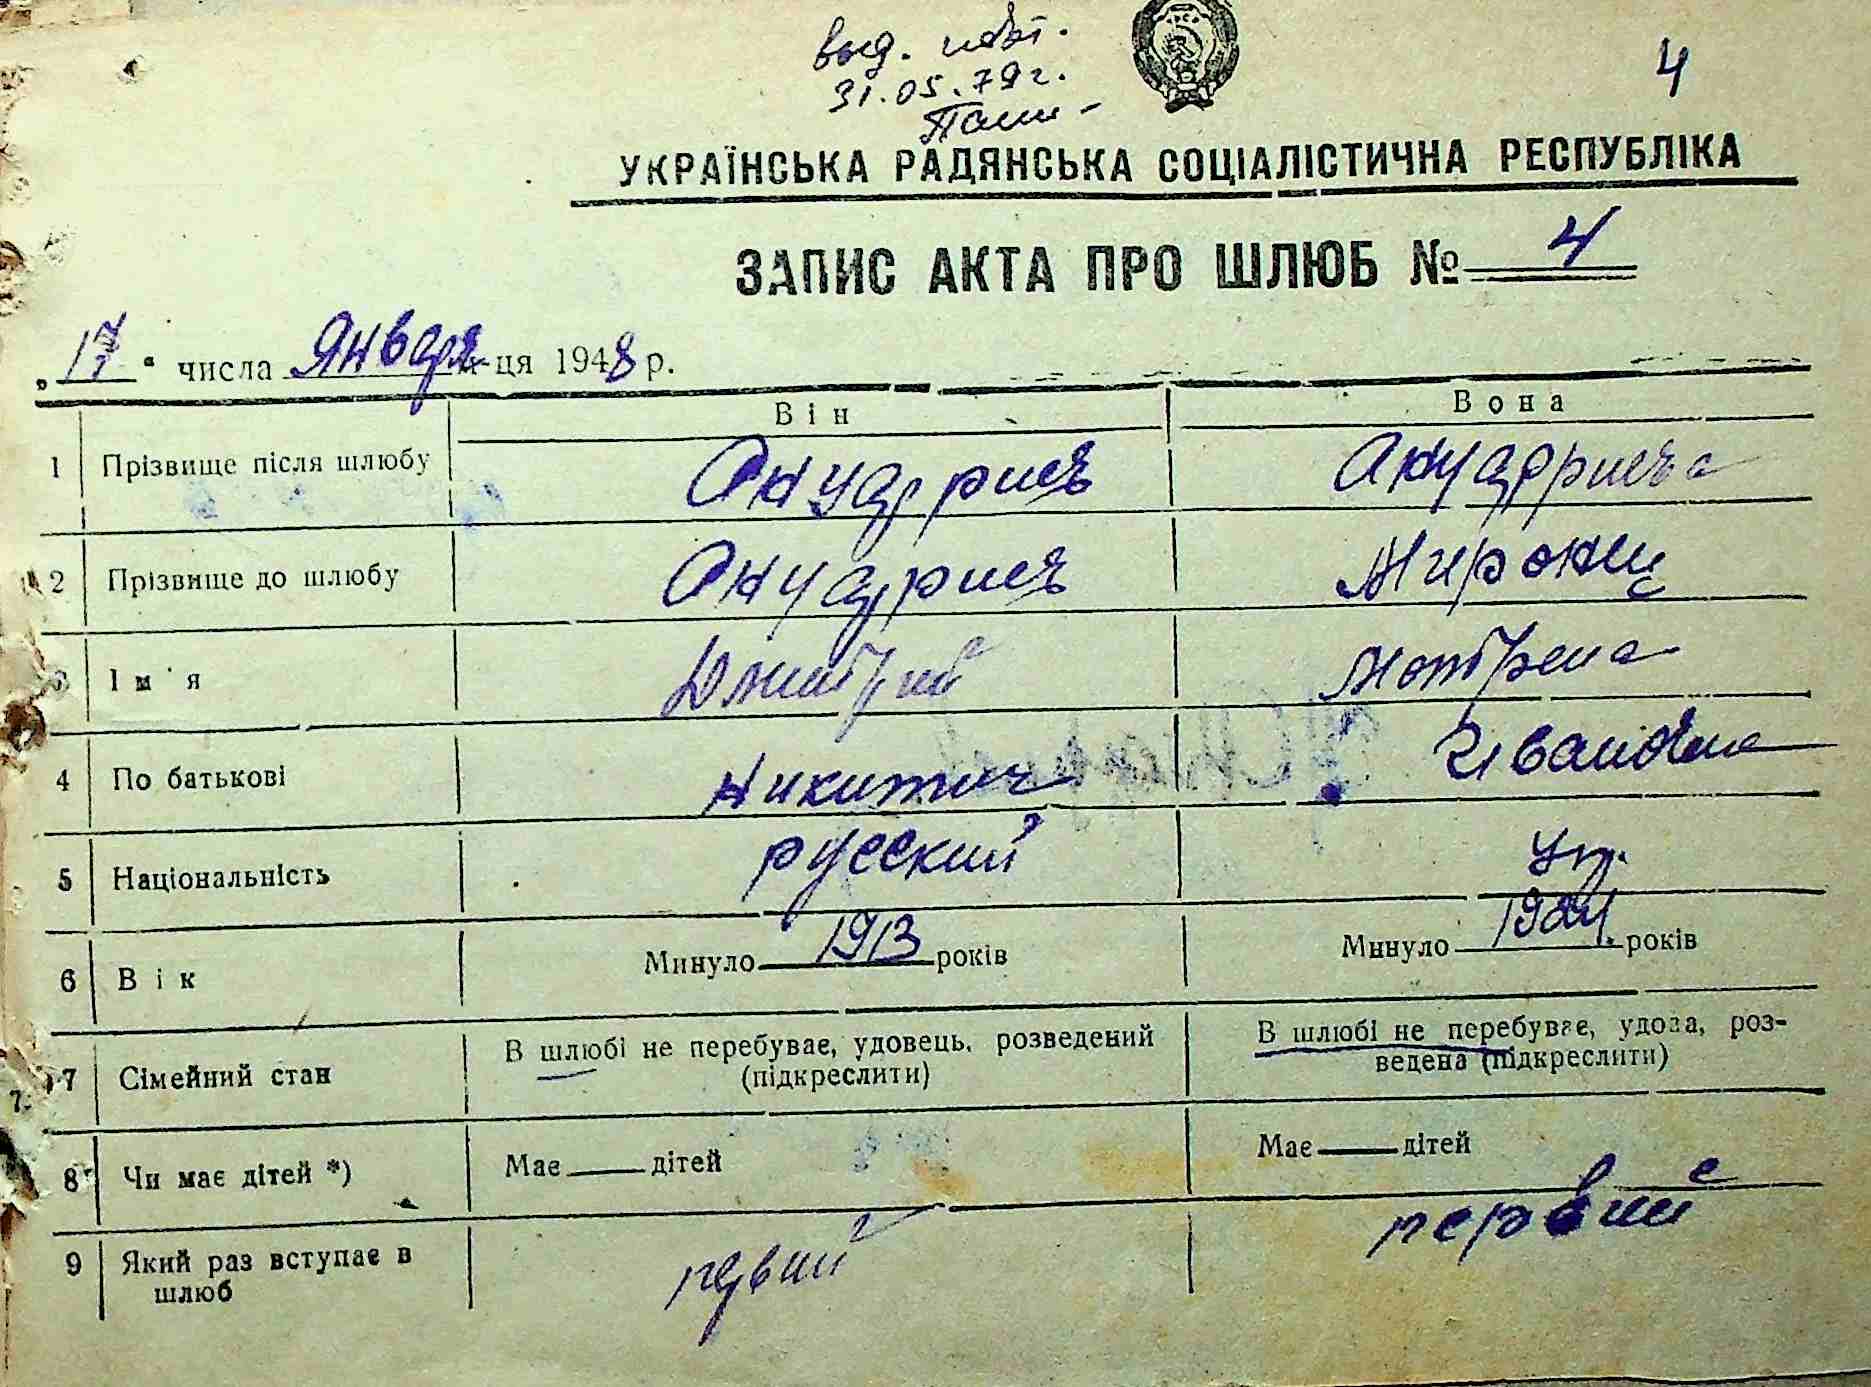 выд. повт.
31.05.79г.
4
УКРАЇНСЬКА РАДЯНСЬКА СОЦІАЛІСТИЧНА РЕСПУБЛІКА
ЗАПИС АКТА ПРО ШЛЮБ № 4
„17“ числа Января м-ця 1948 р.
Він Вона
1 Прізвище після шлюбу
2 Прізвище до шлюбу
3 Ім'я Дмитрий Мотрена
4 По батькові Никитич Ивановна
5 Національність русский укр.
6 Вік Минуло 1913 років Минуло 1924 років
7 Сімейний стан В шлюбі не перебуває, удовець, розведений В шлюбі не перебуває, удова, роз-
(підкреслити) ведена (підкреслити)
7.
8 Чи має дітей *) Має — дітей Має — дітей
9 Який раз вступає в первий первий
шлюб